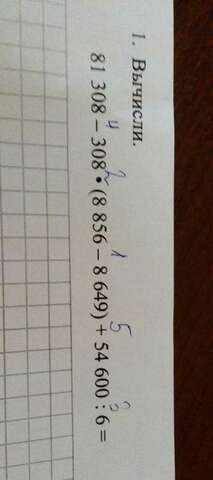 1. Вычисли.
4 2 1 5 3
81 308 – 308 • (8 856 – 8 649) + 54 600 : 6 =